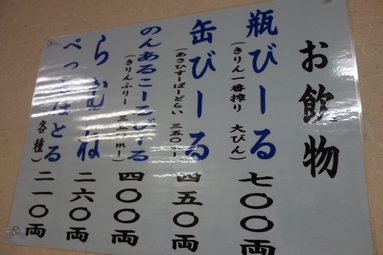 お飲物
瓶びーる 七〇〇両
(きりん一番搾り 大びん)
缶びーる 四五〇両
(あさひすーぱーどらい 三五〇ml)
のんあるこーるびーる 四〇〇両
(きりんふりー 三五〇ml)
らむね 二六〇両
ぺっとぼとる 二一〇両
(各種)